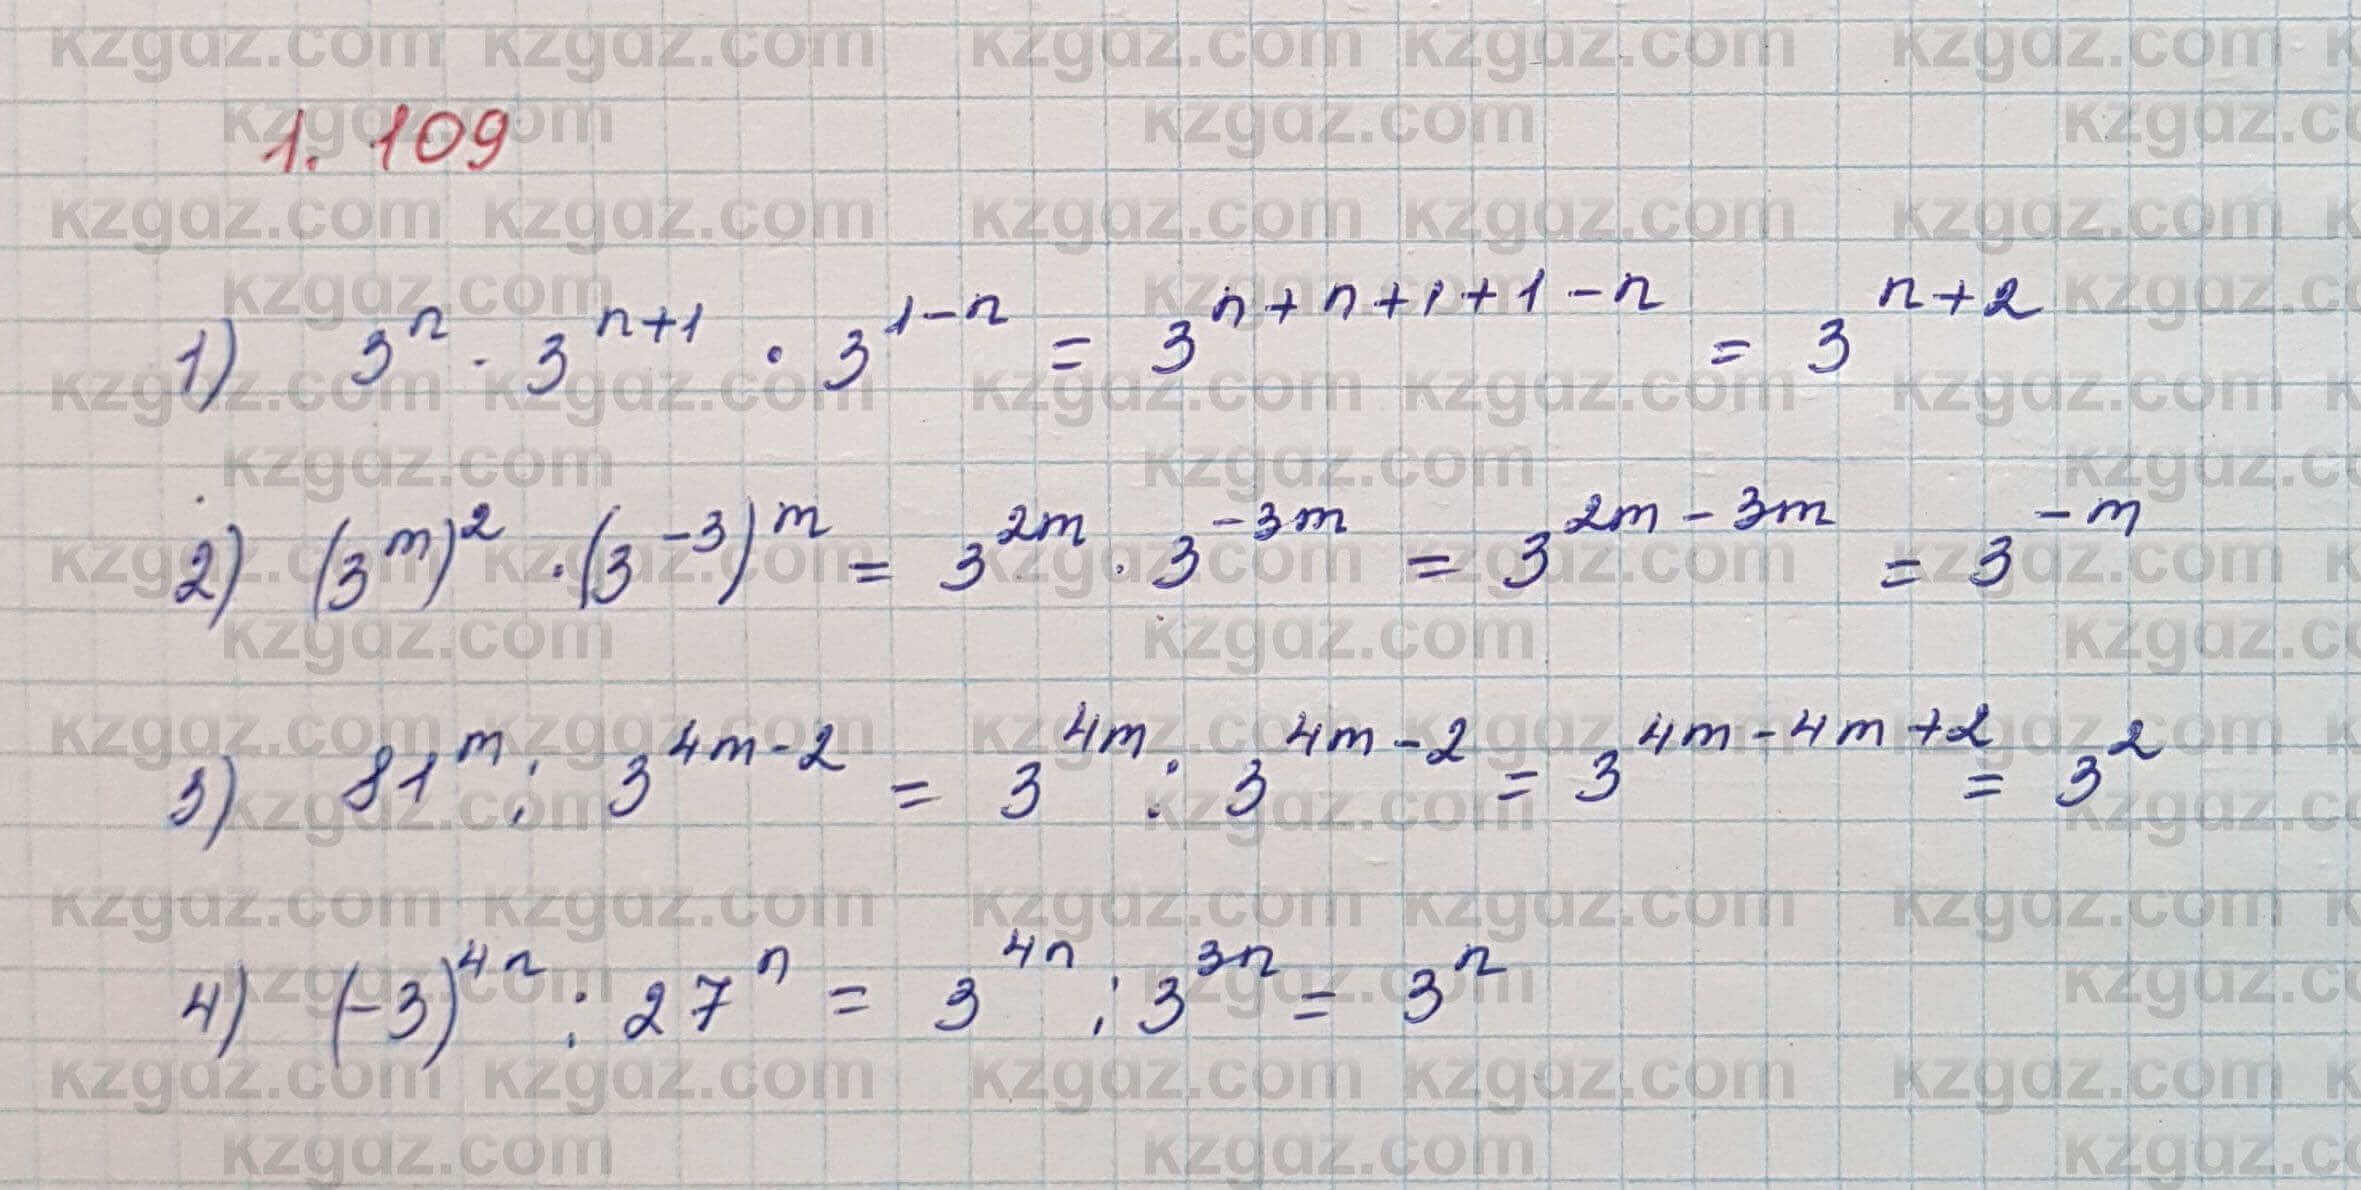 1. 109
1) 3^n · 3^{n+1} · 3^{1-n} = 3^{n+n+1+1-n} = 3^{n+2}
2) (3^m)^2 · (3^{-3})^m = 3^{2m} · 3^{-3m} = 3^{2m-3m} = 3^{-m}
3) 81^m : 3^{4m-2} = 3^{4m} : 3^{4m-2} = 3^{4m-4m+2} = 3^2
4) (-3)^{4n} : 27^n = 3^{4n} : 3^{3n} = 3^n
kzgdz.com